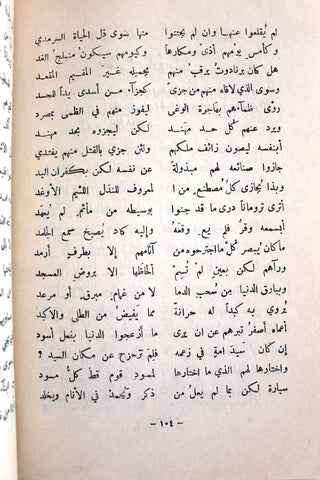 لم يُقلعوا عنها وان لم يجتنوا منها سوى ذل الحياة السرمدي
وكأمس يومهم أذى ومكارها وكيومهم سيكون منبلج الغد
هل كان برنادوت يرقب منهم بجميله غير المقيم المقعد
وسوى الذي لاقاه منهم من جزى كجزاء من أسدى يداً للحسد
روّى ظماءهم بهاجرة الوغى ليفوز منهم في الظمى بمصرد
ويرد عنهم كل حد مهند لكن ليجزوه بحد مهند
أبنفسه ليصون زائف ملكهم ولئن جزي بالقتل منهم يفتدي
جازوا صنائعه لهم مبذولة عن نفسه لكن بكفران اليد
وبذا يُجازى كل مصطنع من الـ لمعروف للنذل اللئيم الأوغد
أترى ترومانا درى ما قد جنوا بوسيطه من مأثم لم يُعهد
أبسمعه وقر فلم يع وقعه وإليه كاد يُصيخ سمع الجلمد
ما كان يُبصر كل ما اجترحوه من آثامهم إلا بطرف أرمد
ورآهم لكن بعين لم تسم ألحاظها إلا بروض المسجد
وببارق الدنيا من سُحب الدما لا من غمام مبرق أو مرعد
يُروي به كبداً له حرانة مما يفيض من الطلى والأكبد
أعماه أصفر تبرهم عن ان يرى ما أزعجوا الدنيا بفعل أسود
إن كان سيد امة في زعمه فلم تزحزح عن مكان السيد ؟
واختارها لهم الذي ما اختارها لمسود قوم قط كل مسود
سيارة لكن بما لم يعل من ذكر ويُحمد في الأنام ويخلد
- ١٠٤ -